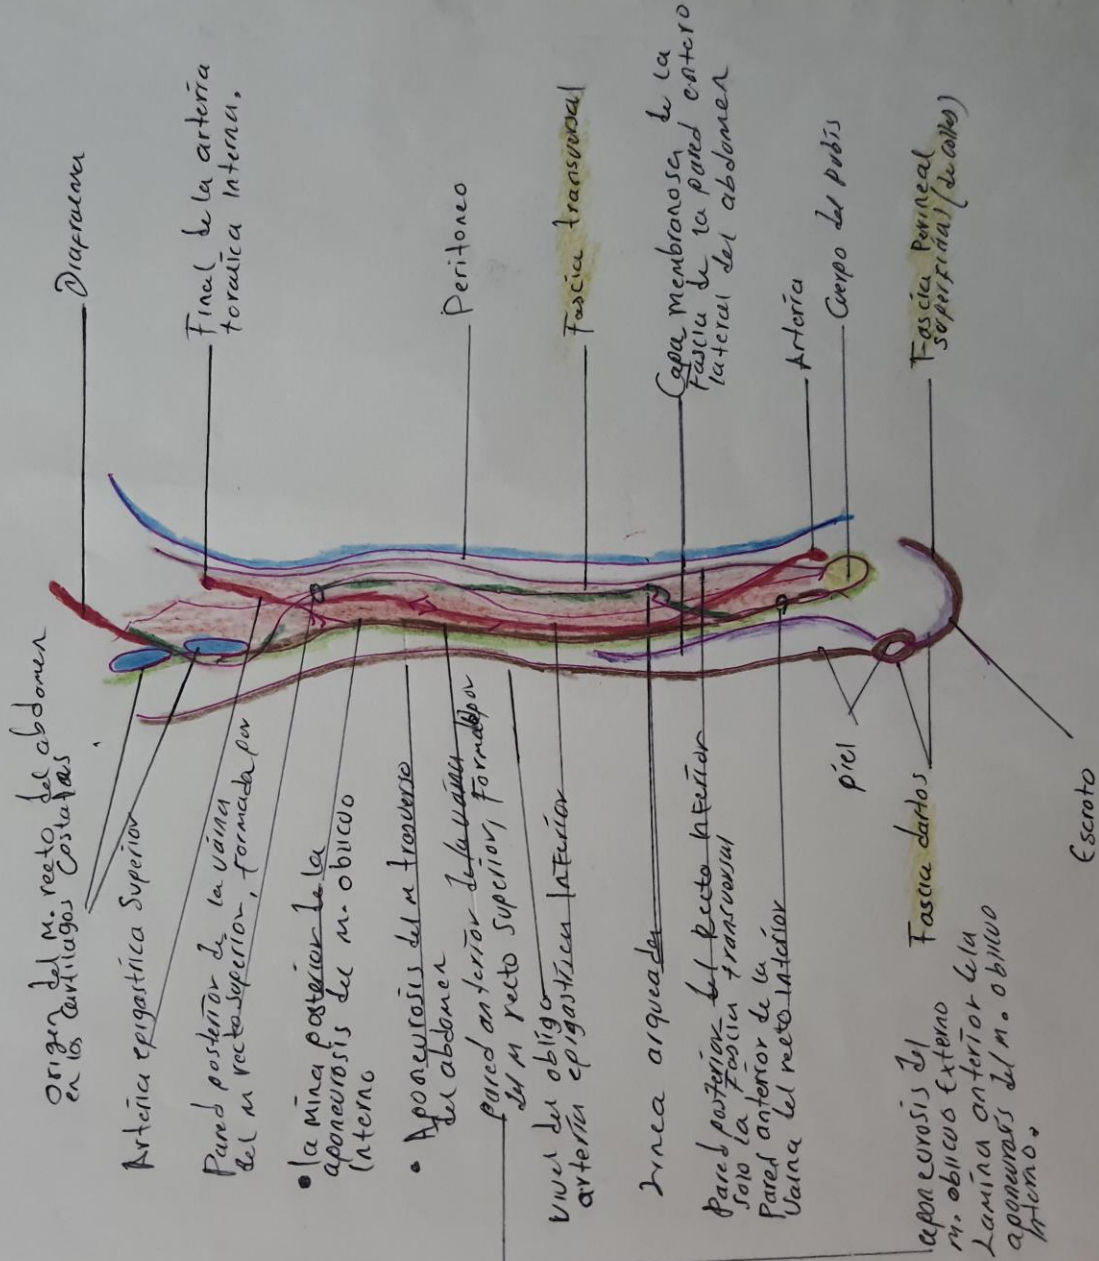 origen del M. recto del abdomen
en los cartílagos Costales
Arteria epigastrica Superior
Pared posterior de la vaina
del M recto superior, formada por
• la mina posterior de la
aponeurosis del M. oblicuo
Interno
• Aponeurosis del M trasverso
del abdomen
pared anterior de la vaina
del M recto superior, Formada por
nivel del obligo
arteria epigástrica Inferior
Línea arqueada
Pared posterior del Recto Inferior
Solo la Fascia transversal
Pared anterior de la
Vaina del recto Inferior
aponeurosis del
M. oblicuo Externo
Lamina anterior de la
aponeurosis del M. oblicuo
Interno.
Diafragma
Final de la arteria
toraxica Interna.
Peritoneo
Fascia transversal
Capa membranosa de la
Fascia de la pared entero
lateral del abdomen
Arteria
Cuerpo del pubis
Fascia Perineal
superficial (de colles)
piel
Fascia dartos
Escroto